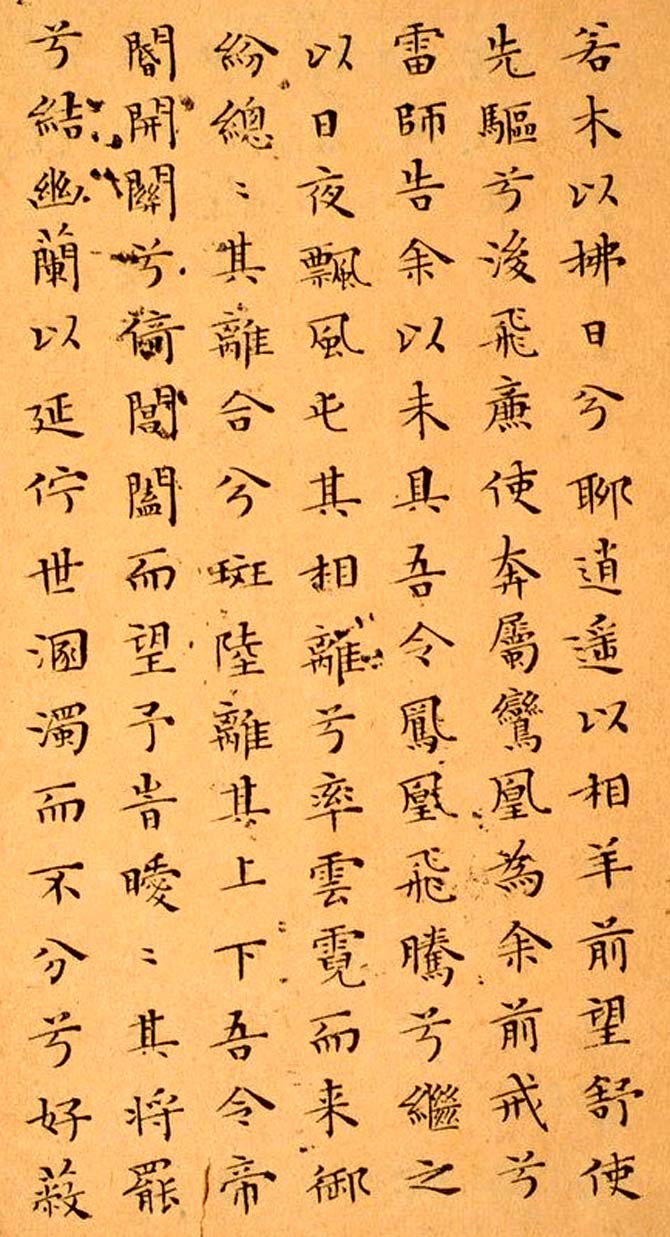 若木以拂日兮聊逍遥以相羊前望舒使
先驅兮後飛廉使奔屬鸞凰為余前戒兮
雷師告余以未具吾令鳳凰飛騰兮繼之
以日夜飄風屯其相離兮率雲霓而来御
紛總〻其離合兮斑陸離其上下吾令帝
閽開關兮倚閶闔而望予旹曖〻其将罷
兮結幽蘭以延佇世溷濁而不分兮好蔽